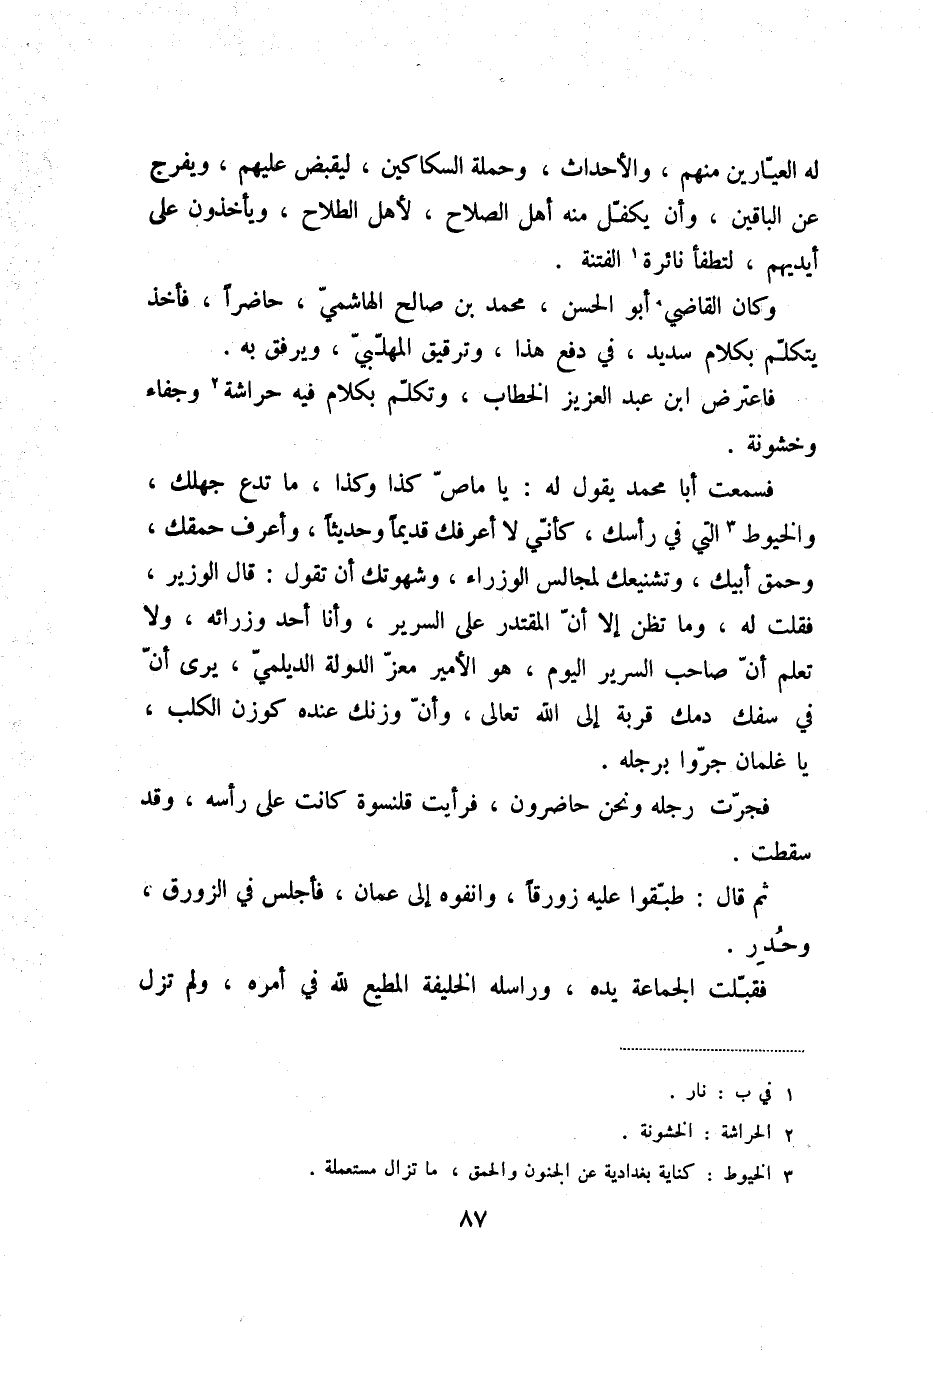 له العيّارين منهم ، والأحداث ، وحملة السكاكين ، ليقبض عليهم ، ويفرج
عن الباقين ، وأن يكفّل منه أهل الصلاح ، لأهل الطلاح ، ويأخذون على
أيديهم ، لتطفأ نائرة١ الفتنة .
وكان القاضي أبو الحسن ، محمد بن صالح الهاشميّ ، حاضراً ، فأخذ
يتكلّم بكلام سديد ، في دفع هذا ، وترقيق المهلّبيّ ، ويرفق به .
فاعترض ابن عبد العزيز الخطاب ، وتكلّم بكلام فيه حراشة٢ وجفاء
وخشونة .
فسمعت أبا محمد يقول له : يا ماصّ كذا وكذا ، ما تدع جهلك ،
والخيوط٣ التي في رأسك ، كأنّي لا أعرفك قديماً وحديثاً ، وأعرف حمقك ،
وحمق أبيك ، وتشنيعك لمجالس الوزراء ، وشهوتك أن تقول : قال الوزير ،
فقلت له ، وما تظن إلا أنّ المقتدر على السرير ، وأنا أحد وزرائه ، ولا
تعلم أنّ صاحب السرير اليوم ، هو الأمير معزّ الدولة الديلميّ ، يرى أنّ
في سفك دمك قربة إلى الله تعالى ، وأنّ وزنك عنده كوزن الكلب ،
يا غلمان جرّوا برجله .
فجرّت رجله ونحن حاضرون ، فرأيت قلنسوة كانت على رأسه ، وقد
سقطت .
ثم قال : طبّقوا عليه زورقاً ، وانفوه إلى عمان ، فأجلس في الزورق ،
وحُدِر .
فقبّلت الجماعة يده ، وراسله الخليفة المطيع لله في أمره ، ولم تزل
١ في ب : نار .
٢ الحراشة : الخشونة .
٣ الخيوط : كناية بغدادية عن الجنون والحمق ، ما تزال مستعملة .
٨٧